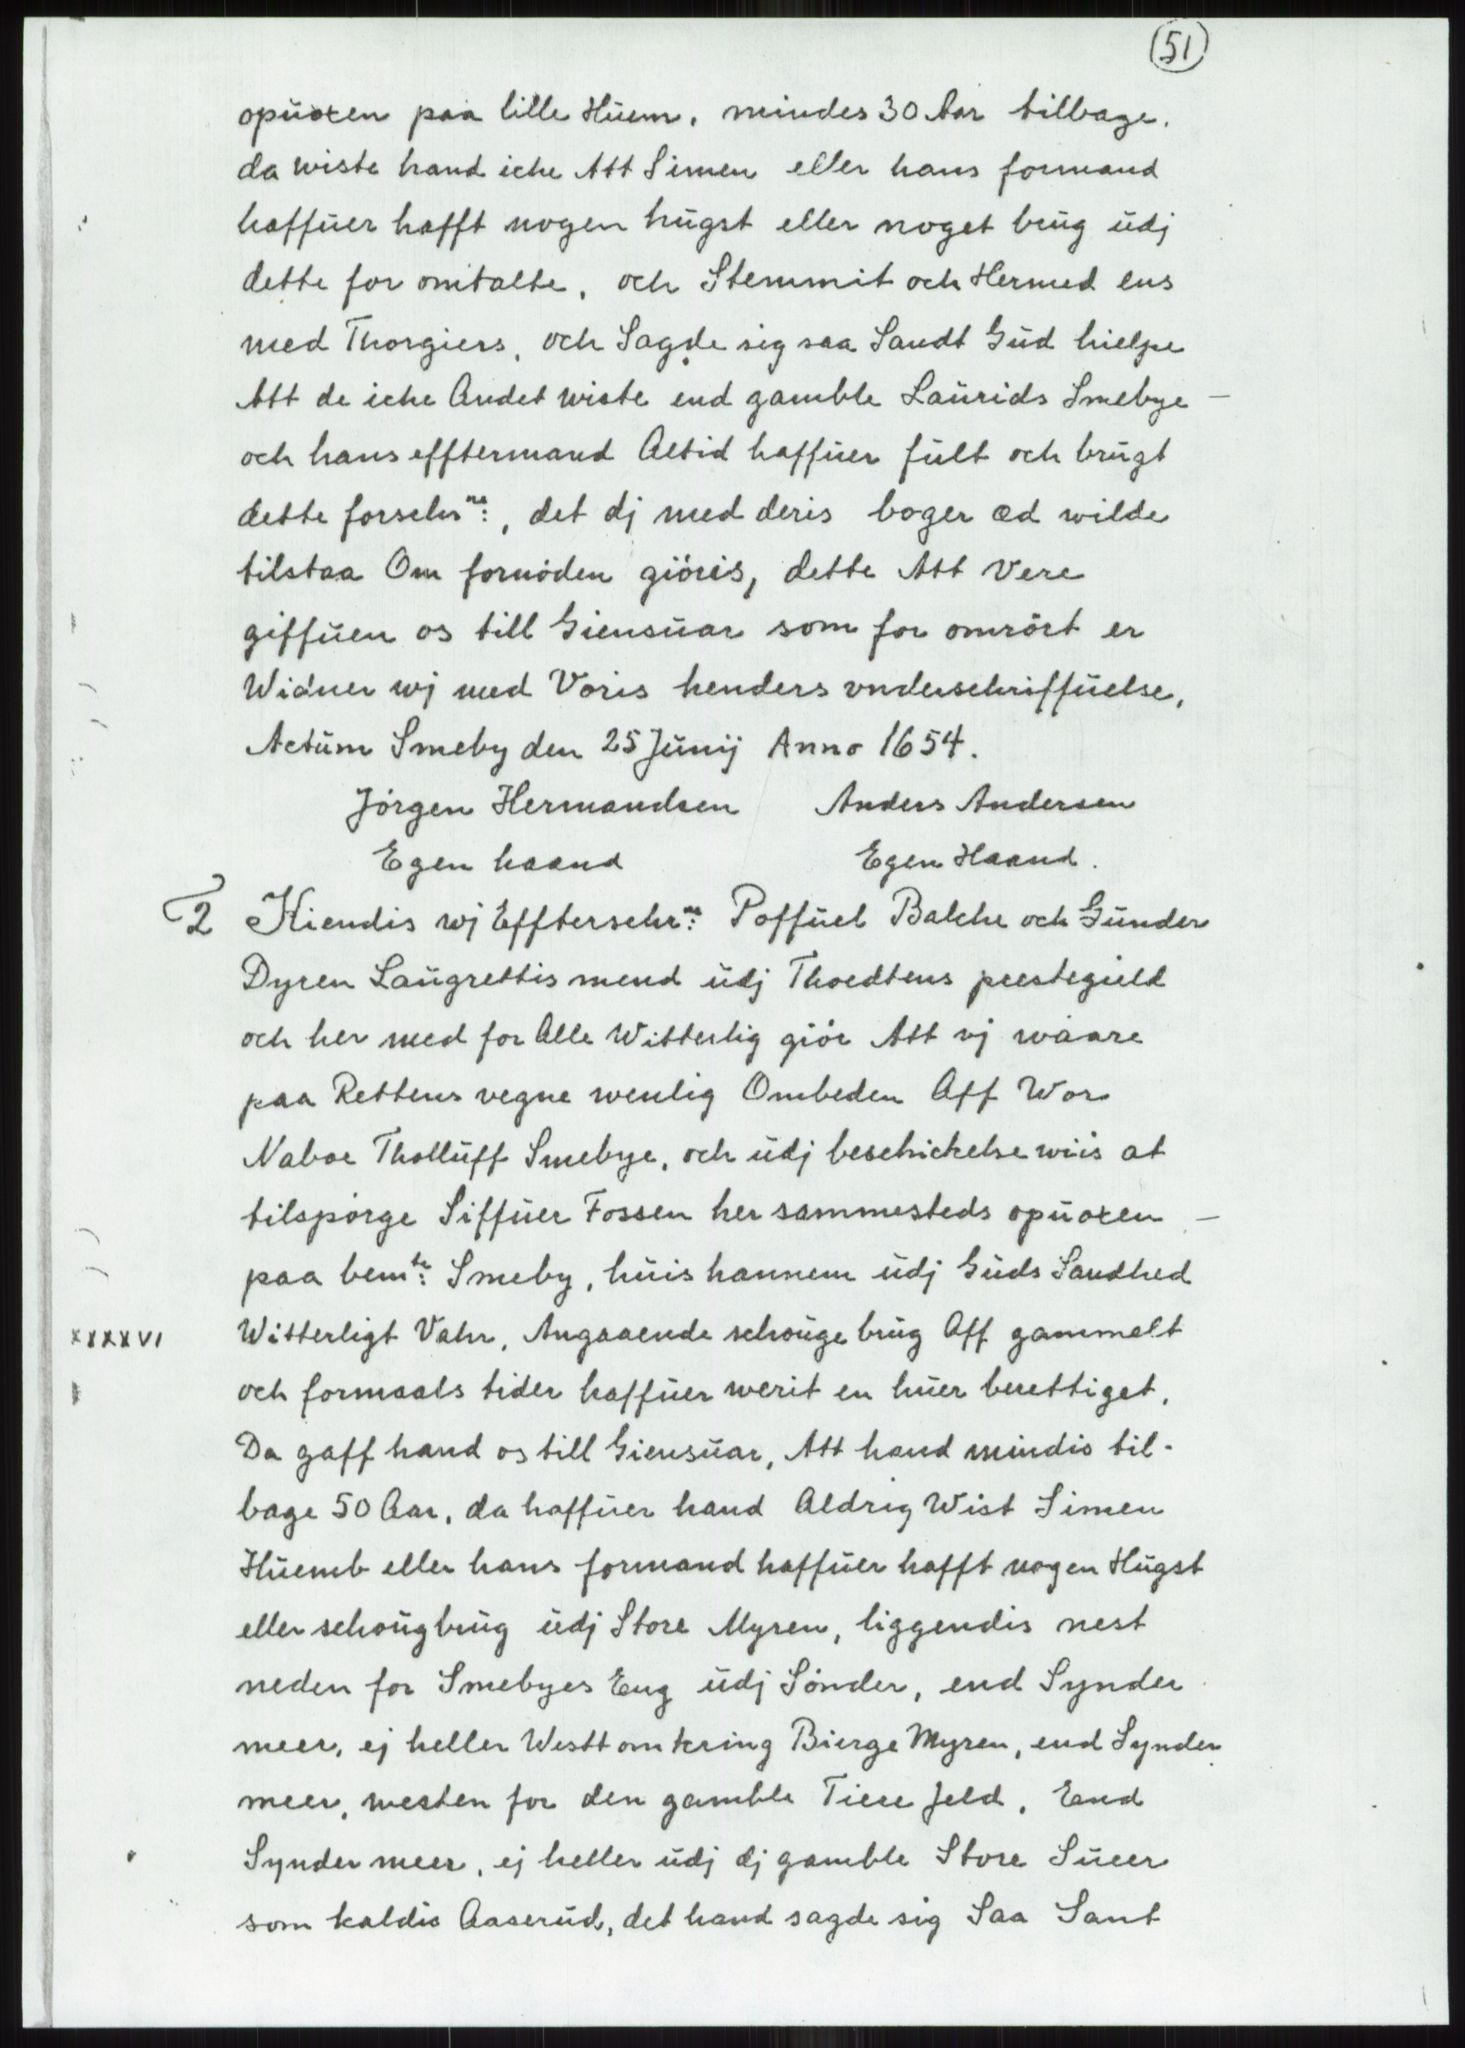 51
opuoxen paa lille Huem, mindes 30 Aar tilbage,
da wiste hand iche Att Simen eller hans formand
haffuer hafft nogen hugst eller noget brug udj
dette for omtalte, och Stemmit och Hermed ens
med Thorgiers, och Sagde sig saa Sandt Gud hielpe
Att de iche Andet wiste end gamble Laurids Smebye —
och hans efftermand Altid haffuer fult och brugt
dette forschr<sup>ne</sup>:, det dj med deris boger æd wilde
tilstaa Om fornöden giöris, dette Att Vere
giffuen os till Giensuar som for omrört er
Widner wj med Voris henders vnderschriffuelse,
Actum Smeby den 25 Junij Anno 1654.
Jörgen Hermandsen Anders Andersen
Egen haand Egen Haand.
2 Kiendis wj Efftersch<sup>ne</sup>: Poffuel Balche och Gunder
Dyren Laugrettis mend udj Thoedtens prestegield
och her med for Alle Witterlig giör Att vj waare
paa Rettens vegne wenlig Ombeden Aff Wor
Naboe Tholluff Smebye, och udj beschickelse wiis at
tilspörge Siffuer Fossen her sammesteds opuoxen —
paa bem<sup>te</sup>: Smeby, huis hannem udj Guds Sandhed
XXXXVI
Witterligt Vahr, Angaaende schouge brug Aff gammelt
och formaals tider haffuer werit en huer berettiget,
Da gaff hand os till Giensuar, Att hand mindis til-
bage 50 Aar, da haffuer hand Aldrig Wist Simen
Huemb eller hans formand haffuer hafft nogen Hugst
eller schougbrug udj Store Myren, liggendis nest
neden for Smebyes Eng udj Sönder, end Synder
meer, ej heller Westt omkring Bierge Myren, end Synder
meer, westen for den gamble Tiere Jeld, End
Synder meer, ej heller udj dj gamble Store Sueer
som kaldis Aaserud, det hand sagde sig Saa Sant